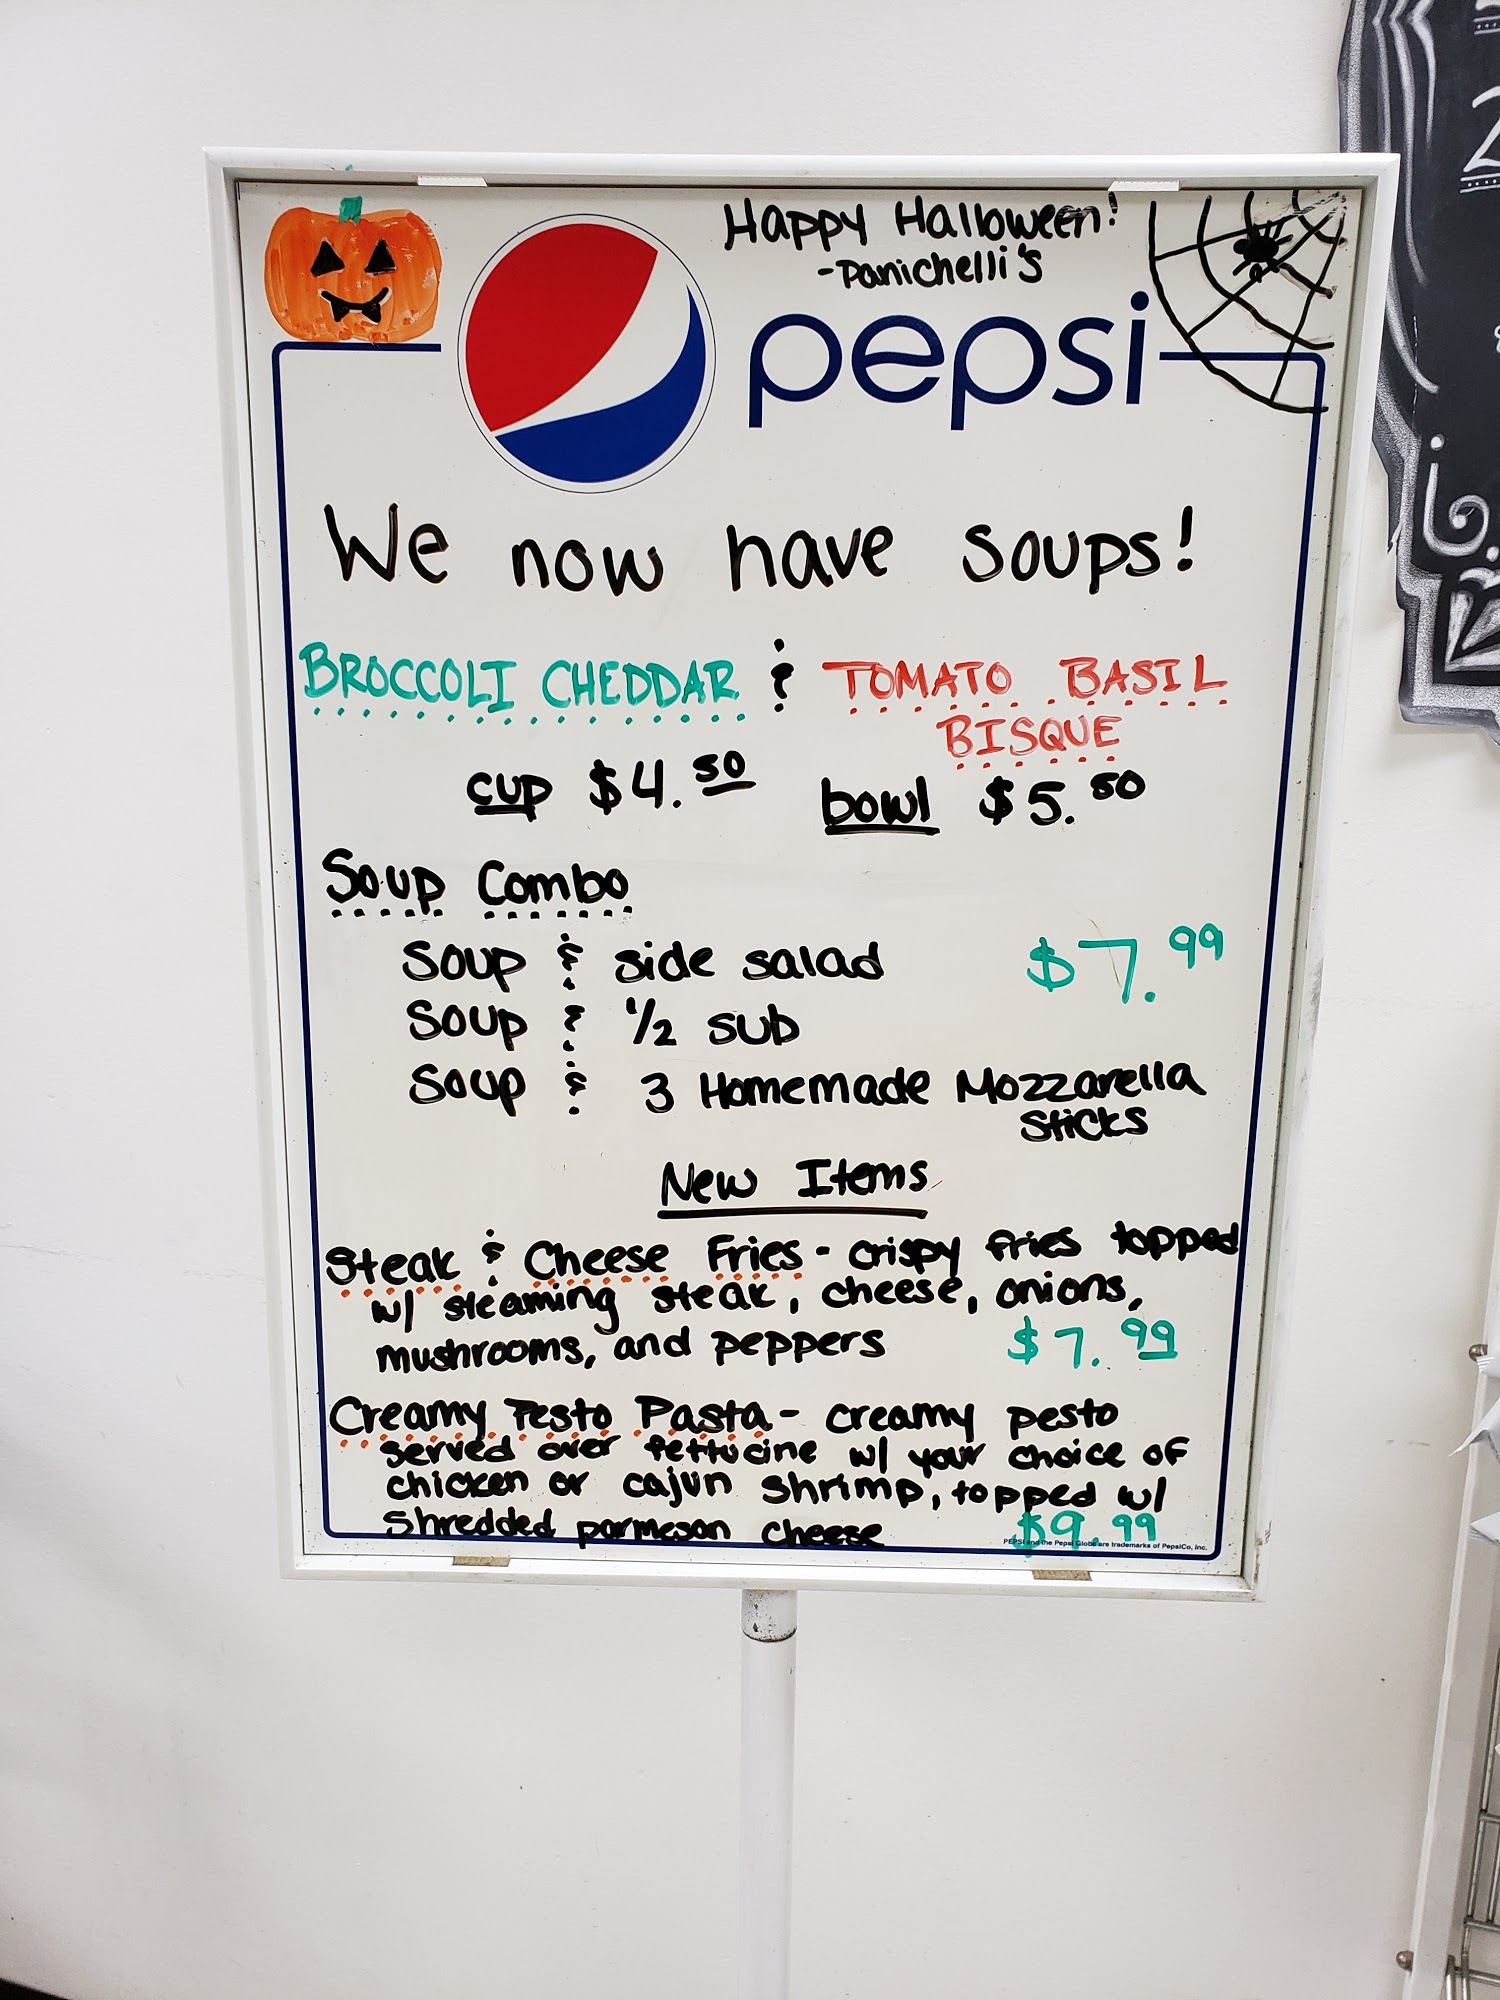 Happy Halloween!
-Panichelli's
pepsi
We now have soups!
BROCCOLI CHEDDAR & TOMATO BASIL
BISQUE
cup $4.50 bowl $5.50
Soup Combo
Soup & side salad $7.99
Soup & 1/2 sub
Soup & 3 Homemade Mozzarella
Sticks
New Items
Steak & Cheese Fries - crispy fries topped
w/ steaming steak, cheese, onions,
mushrooms, and peppers $7.99
Creamy Pesto Pasta - creamy pesto
served over fettucine w/ your choice of
chicken or cajun shrimp, topped w/
shredded parmesan cheese $9.99
PEPSI and the Pepsi Globe are trademarks of PepsiCo, Inc.